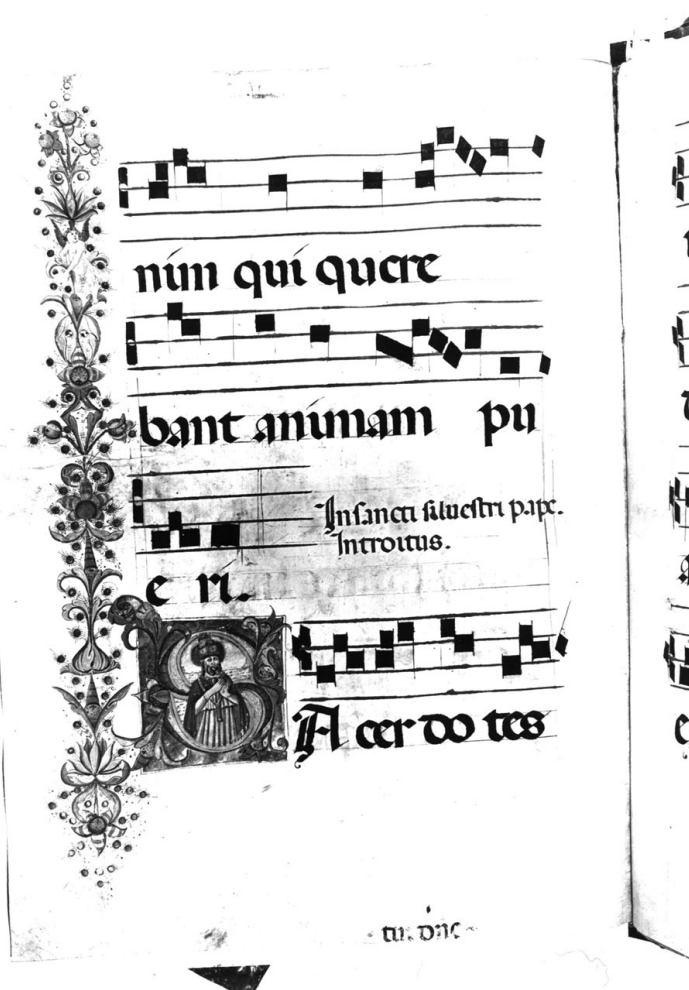 nim qui quere
bant animam pu
In sancti siluestri pape.
Introitus.
e ri.
SAcerdotes
tui dne